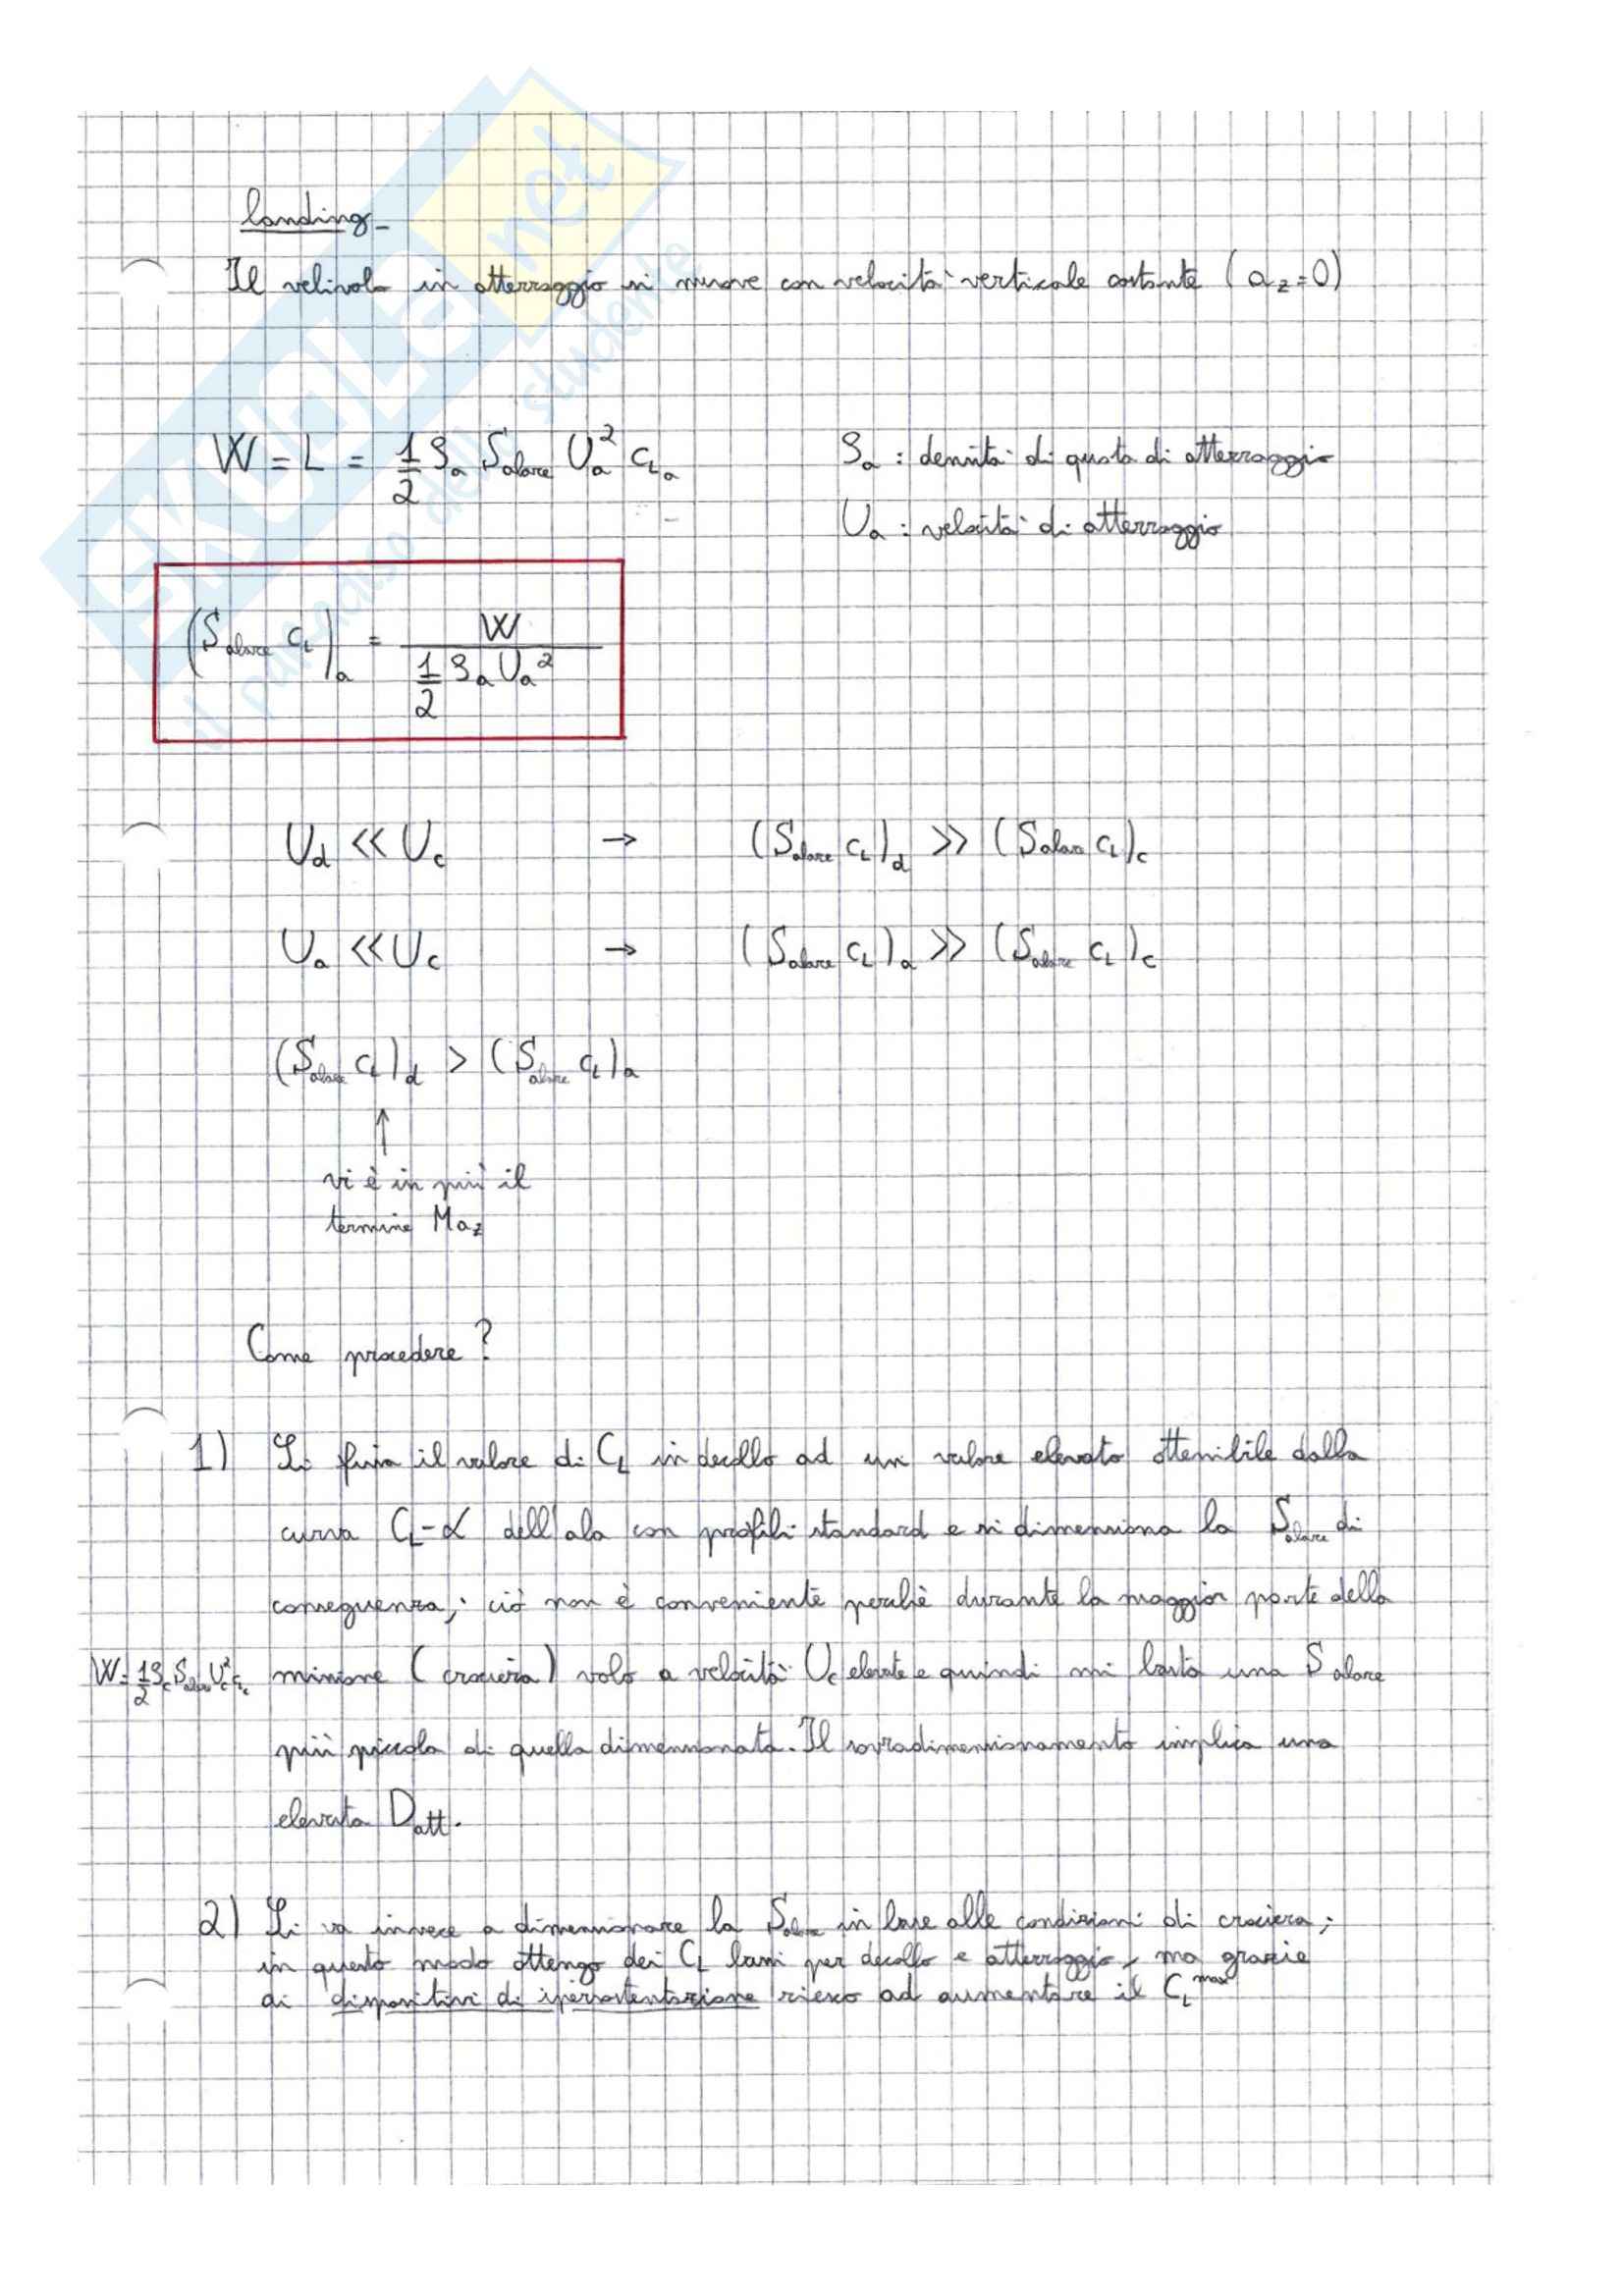 landing
Il velivolo in atterraggio si muove con velocità verticale costante (a_z = 0)
W = L = 1/2 ρ_a S_alare U_a² C_La
ρ_a : densità di quota di atterraggio
U_a : velocità di atterraggio
(S_alare C_L)_a = W / (1/2 ρ_a U_a²)
U_d << U_c → (S_alare C_L)_d >> (S_alare C_L)_c
U_a << U_c → (S_alare C_L)_a >> (S_alare C_L)_c
(S_alare C_L)_d > (S_alare C_L)_a
↑
vi è in più il
termine Ma_z
Come procedere?
1) Si fissa il valore di C_L in decollo ad un valore elevato ottenibile dalla
curva C_L-α dell'ala con profili standard e si dimensiona la S_alare di
conseguenza; ciò non è conveniente perché durante la maggior parte della
W = 1/2 ρ_c S_alare U_c² C_Lc
missione (crociera) volo a velocità U_c elevate e quindi mi basta una S alare
più piccola di quella dimensionata. Il sovradimensionamento implica una
elevata D_att.
2) Si va invece a dimensionare la S_alare in base alle condizioni di crociera;
in questo modo ottengo dei C_L bassi per decollo e atterraggio, ma grazie
di dispositivi di ipersostentazione riesco ad aumentare il C_L^max
SKUOLA.net
il paradiso dello studente